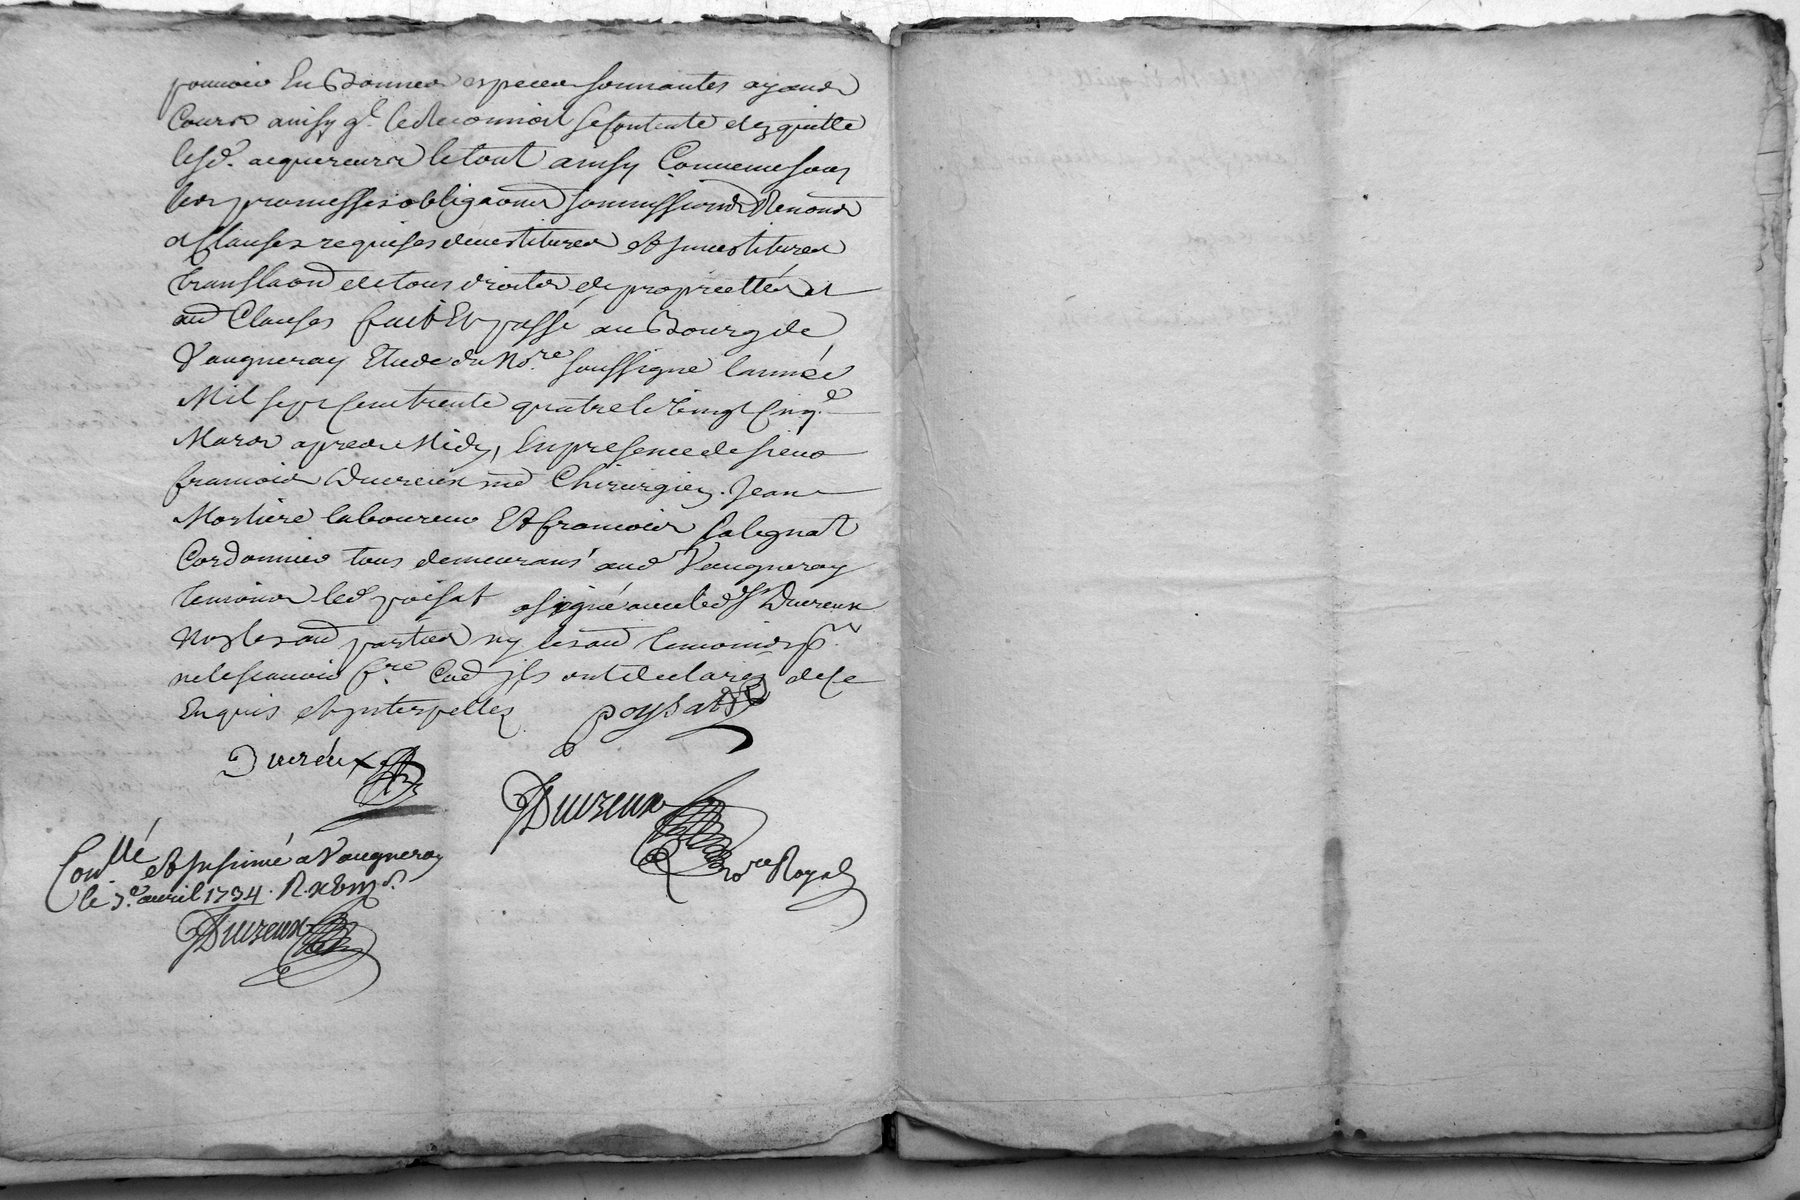 pouvoir En Bonnes especes sonnantes ayands
Cours ainsy ql. le Reconnoit se Contente et quitte
lesd. acquereurs le tout ainsy Convenu sous
les promesses obligaons soumissions Renons
et Clauses requises devestitures et investitures
translaon de tous droits de proprietté et
aud Clauses fait Et passé au Bourg de
Vaugneray Etude du No.re soussigne lannée
Mil sept Cent trente quatre le vingt Cinq.e
Mars apres Midy, En presence de sieur
francois Ducreux md Chirurgien. Jean
Mortiere laboureur Et francois Salignat
Cordonnier tous demeurans aud Vaugneray
temoins led poisat a signé avec led sr Ducreux
Non les aud parties ny les aud temoins pr.
ne le scauoir f.re Cad ils ont declarez de ce
Enquis et interpellez
poysat
Ducréux
Ducreux
no.re Royal
Con.llé et Insinué a Vaugneray
le 3.e auril 1734.
Ducreux